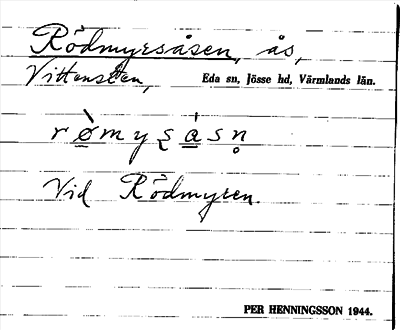 Rödmyrsåsen, ås,
Vittensten, Eda sn, Jösse hd, Värmlands län.
rø̀myʂásn̥
Vid Rödmyren.
PER HENNINGSSON 1944.